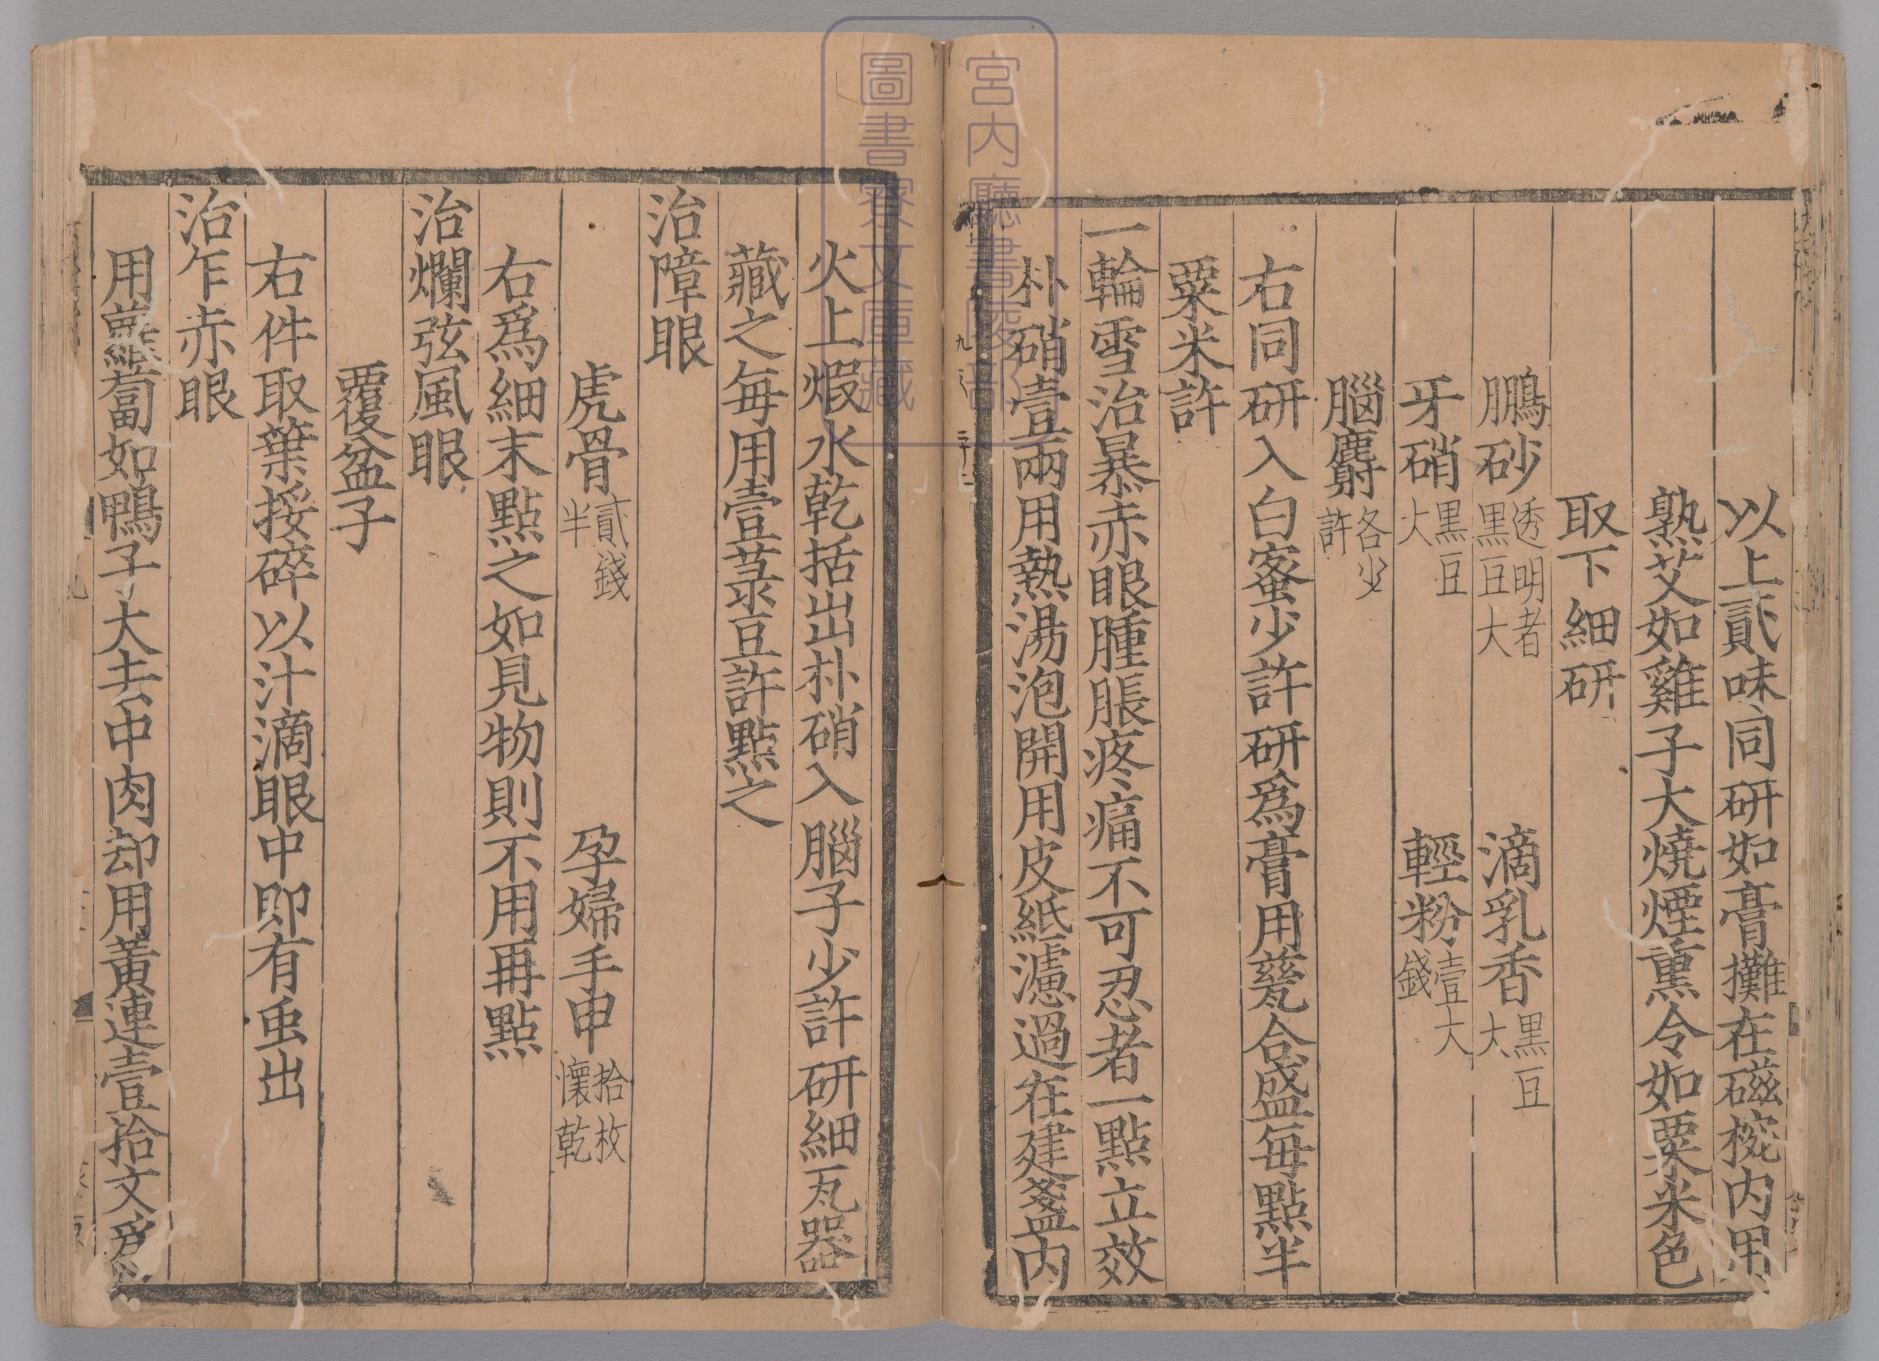 以上貳味同研如膏攤在磁椀内用
熟艾如雞子大燒煙熏令如粟米色
取下細研
鵬砂透明者黒豆大 滴乳香黒豆大
牙硝黒豆大 輕粉壹大錢
腦麝各少許
右同研入白蜜少許研爲膏用甆合盛每點半
粟米許
一輪雪治暴赤眼腫脹疼痛不可忍者一點立效
朴硝壹兩用熱湯泡開用皮紙濾過在建盞内
火上煆水乾括出朴硝入腦子少許研細瓦器
藏之每用壹菉豆許點之
治障眼
虎骨貳錢半 孕婦手申拾枚懷乾
右爲細末點之如見物則不用再點
治爛弦風眼
覆盆子
右件取葉挼碎以汁滴眼中即有虫出
治乍赤眼
用蘿蔔如鴨子大去中肉却用黃連壹拾文爲
宮内廳書陵部
圖書寮文庫藏